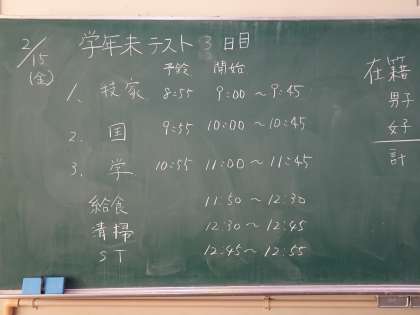 2/15
(金)
学年末テスト3日目
予鈴 開始
1. 技家 8:55 9:00～9:45
2. 国 9:55 10:00～10:45
3. 学 10:55 11:00～11:45
給食 11:50～12:30
清掃 12:30～12:45
ST 12:45～12:55
在籍
男子
女子
計